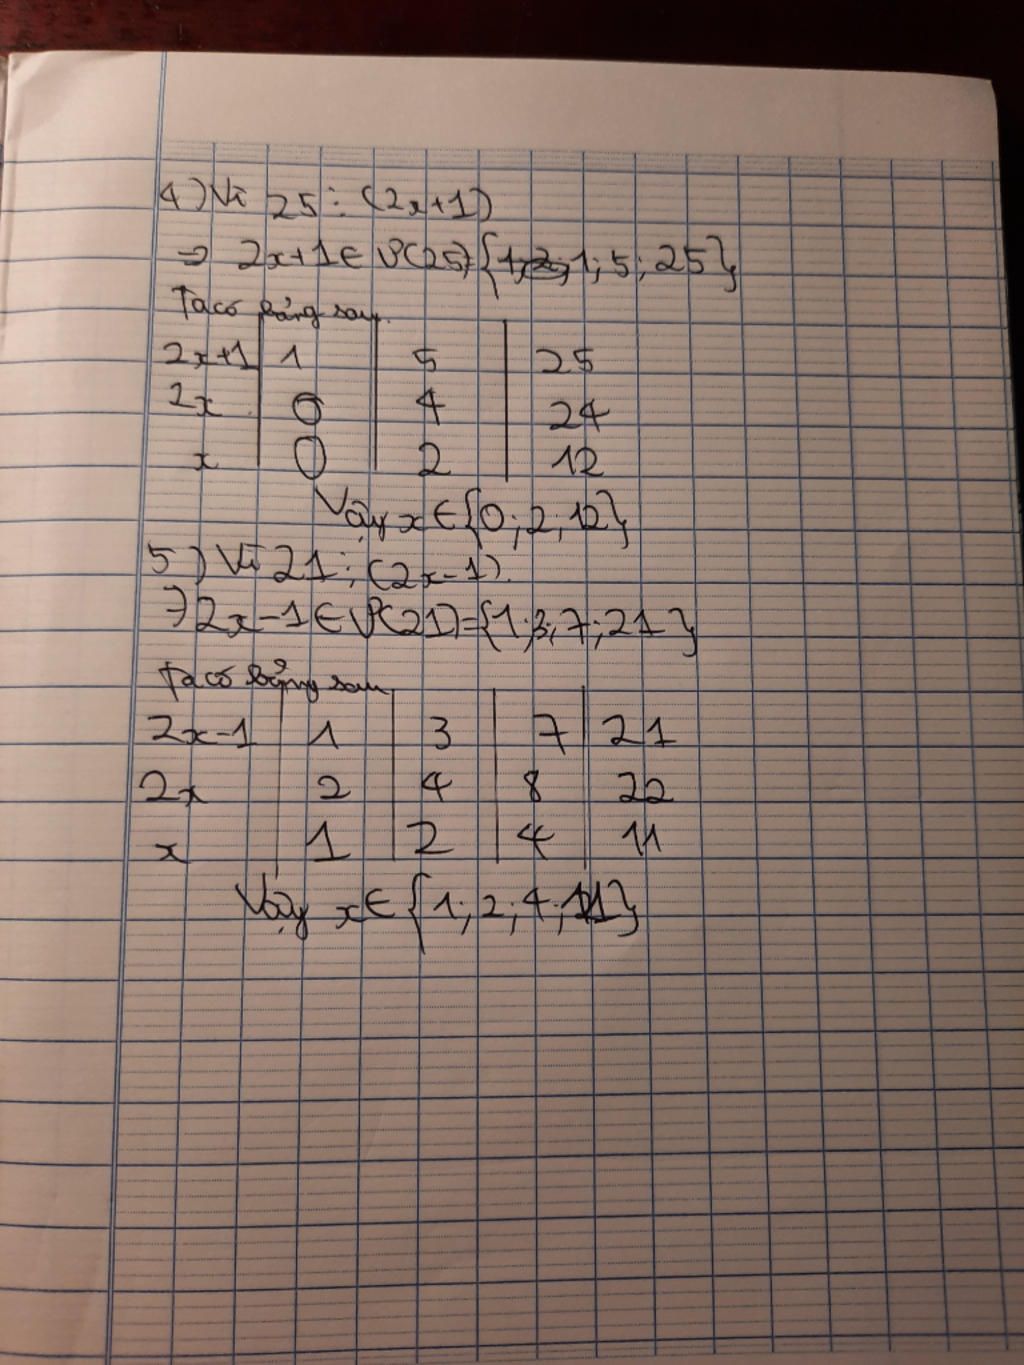 4) Vì 25 ⋮ (2x+1)
⇒ 2x+1 ∈ Ư(25) {1; 2; 1; 5; 25}
Ta có bảng sau
2x+1 | 1 | 5 | 25
2x | 0 | 4 | 24
x | 0 | 2 | 12
Vậy x ∈ {0; 2; 12}
5) Vì 21 ⋮ (2x-1).
⇒ 2x-1 ∈ Ư(21)={1; 3; 7; 21}
Ta có bảng sau
2x-1 | 1 | 3 | 7 | 21
2x | 2 | 4 | 8 | 22
x | 1 | 2 | 4 | 11
Vậy x ∈ {1; 2; 4; 11}